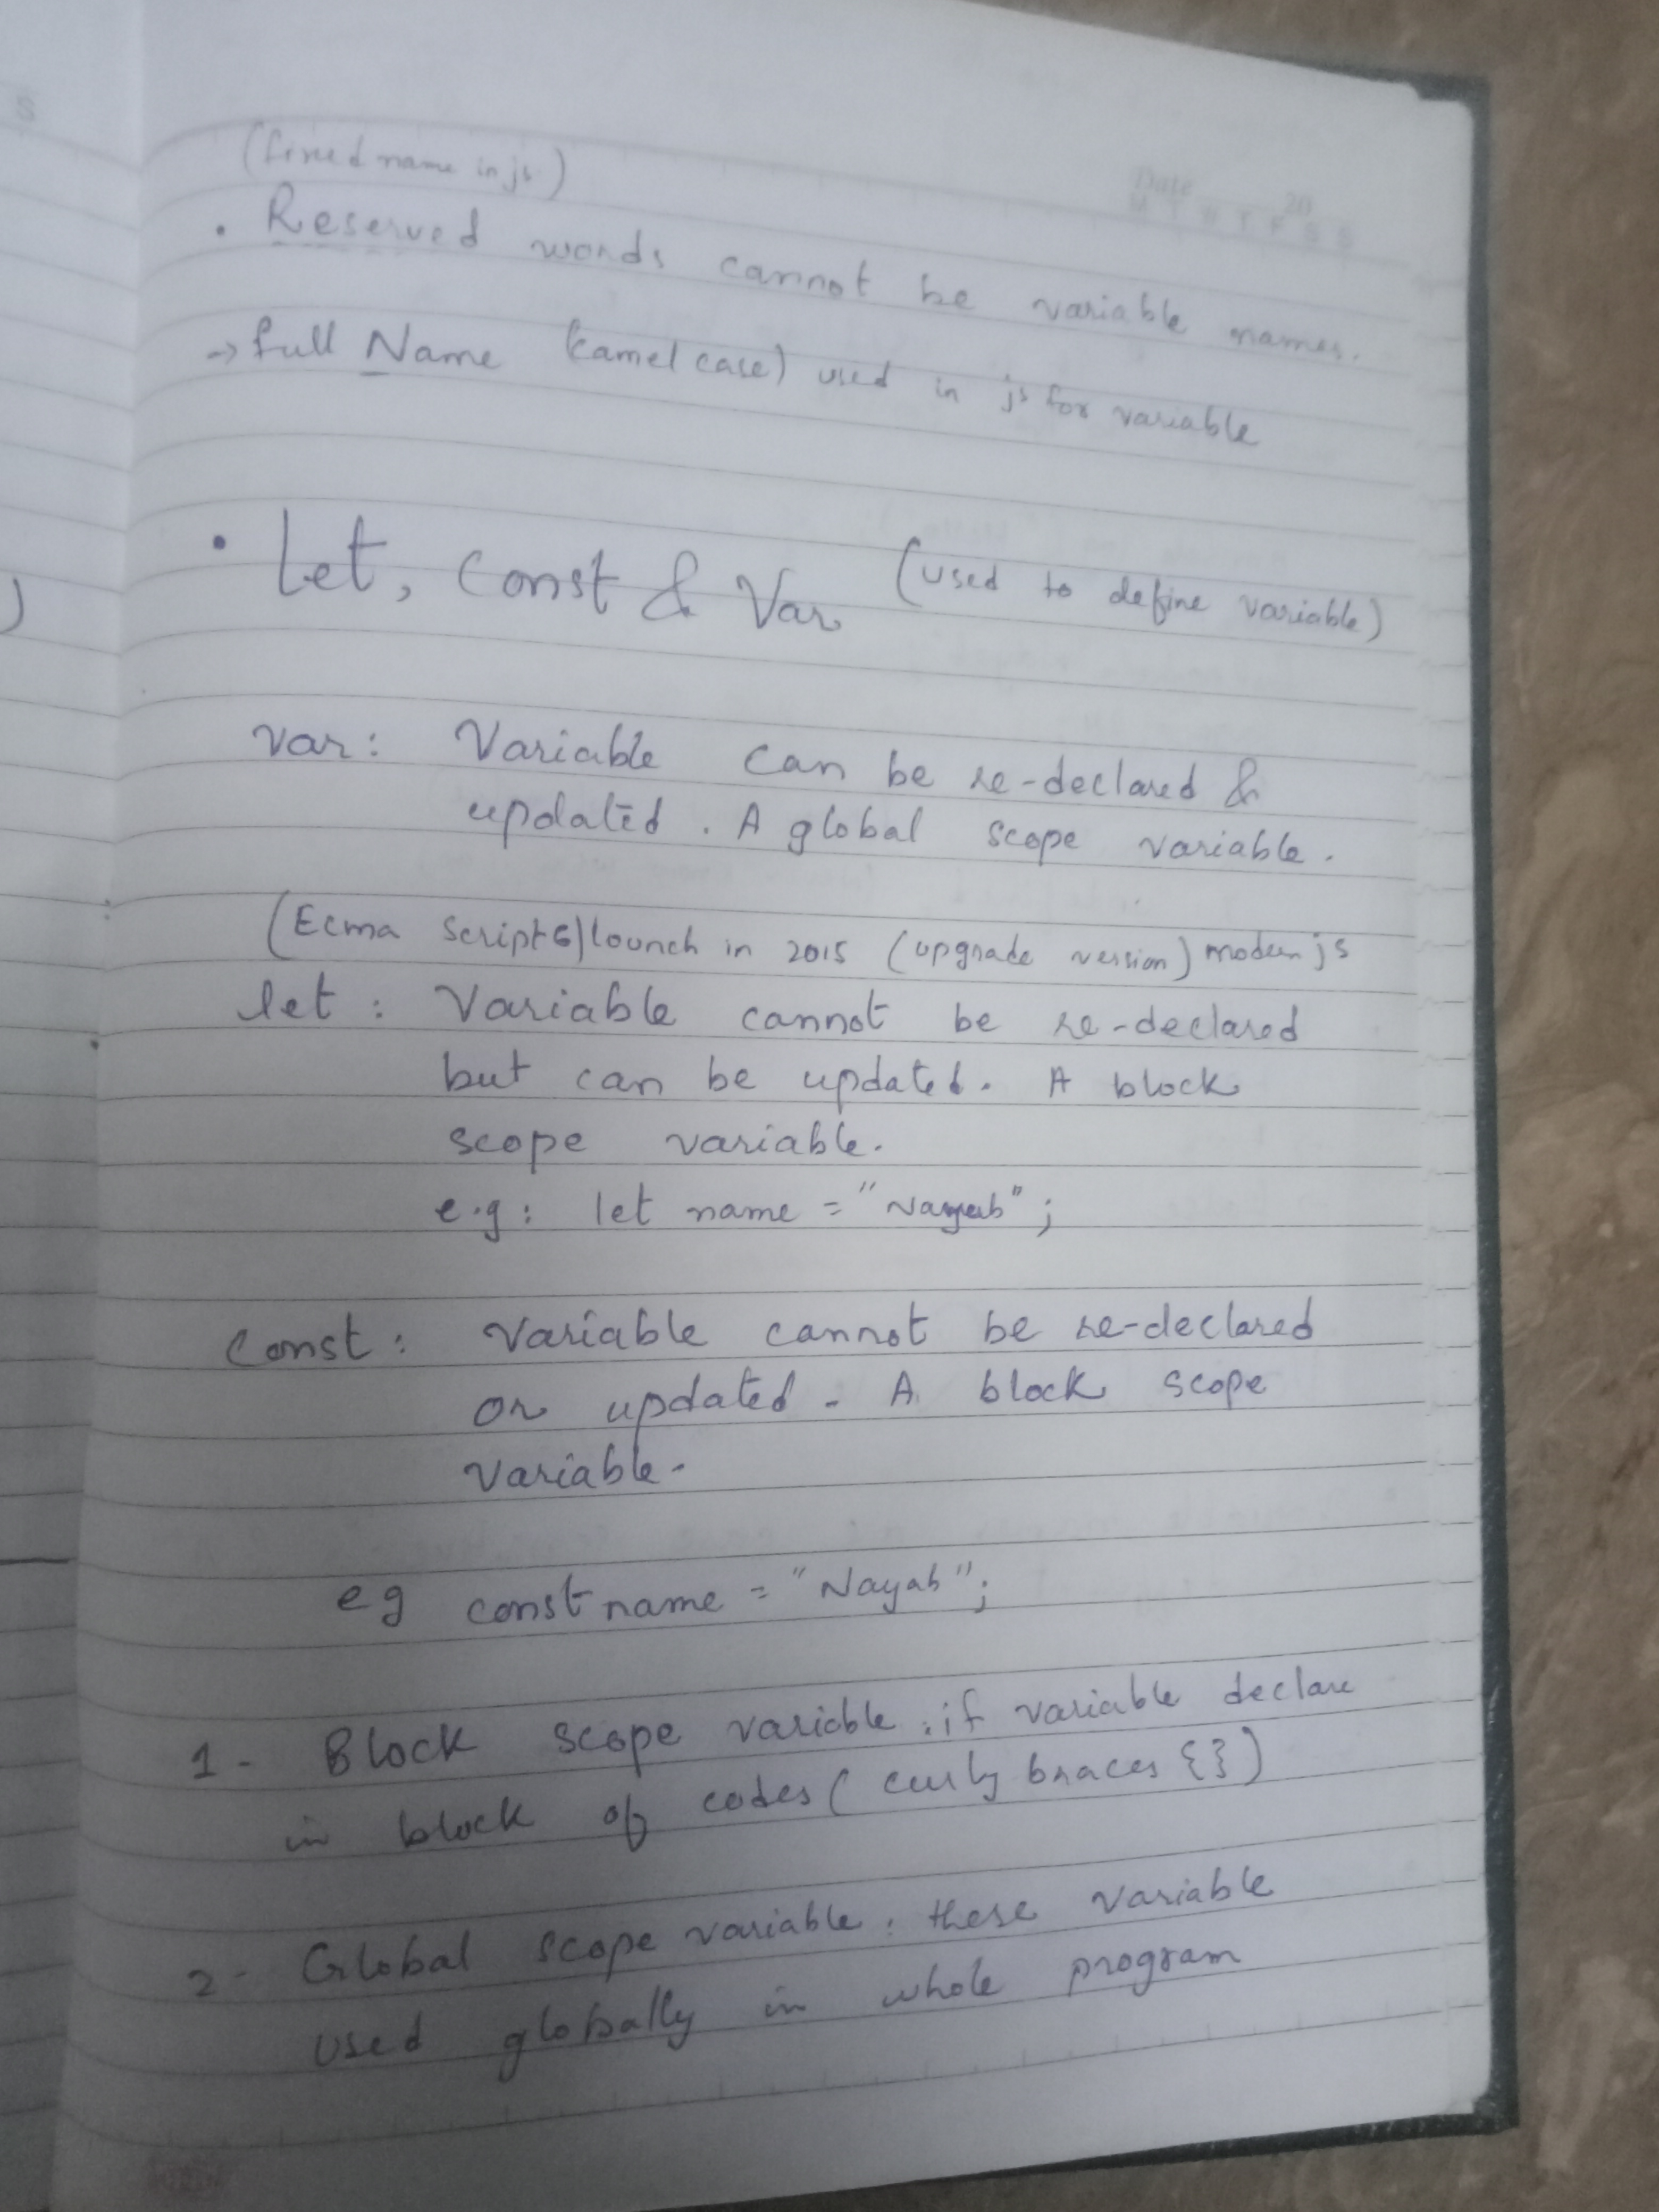 S
Date 20
M T W T F S S
(fixed name in js)
. Reserved words cannot be variable names.
→ full Name (camel case) used in js for variable
• Let, Const & Var (used to define variable)
var: Variable can be re-declared &
updated. A global scope variable.
(Ecma Script6) lounch in 2015 (upgrade version) modern js
let: Variable cannot be re-declared
but can be updated. A block
scope variable.
e.g: let name = "Nayab";
Const: Variable cannot be re-declared
or updated. A block scope
variable.
eg const name = "Nayab";
1- Block scope variable: if variable declare
in block of codes (curly braces {})
2- Global scope variable: these variable
used globally in whole program
)